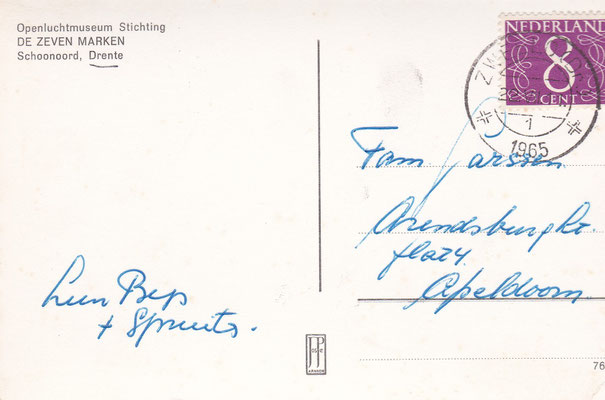 Openluchtmuseum Stichting
DE ZEVEN MARKEN
Schoonoord, Drente
NEDERLAND
8
CENT
1
1965
Fam Jarssen
Arendsburght.
flat 4
Apeldoorn
Leen Bep
+ Spruits.
JP
76